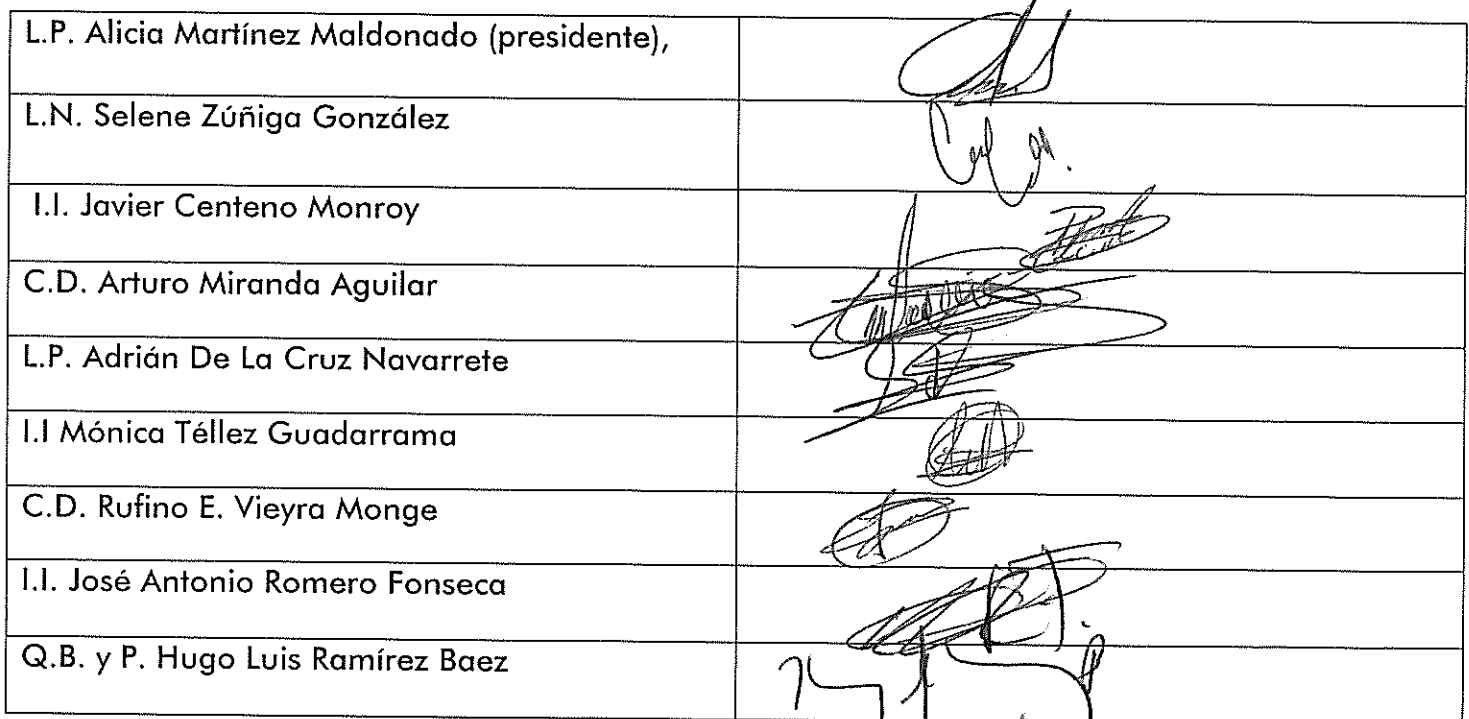 L.P. Alicia Martínez Maldonado (presidente),
L.N. Selene Zúñiga González
I.I. Javier Centeno Monroy
C.D. Arturo Miranda Aguilar
L.P. Adrián De La Cruz Navarrete
I.I Mónica Téllez Guadarrama
C.D. Rufino E. Vieyra Monge
I.I. José Antonio Romero Fonseca
Q.B. y P. Hugo Luis Ramírez Baez